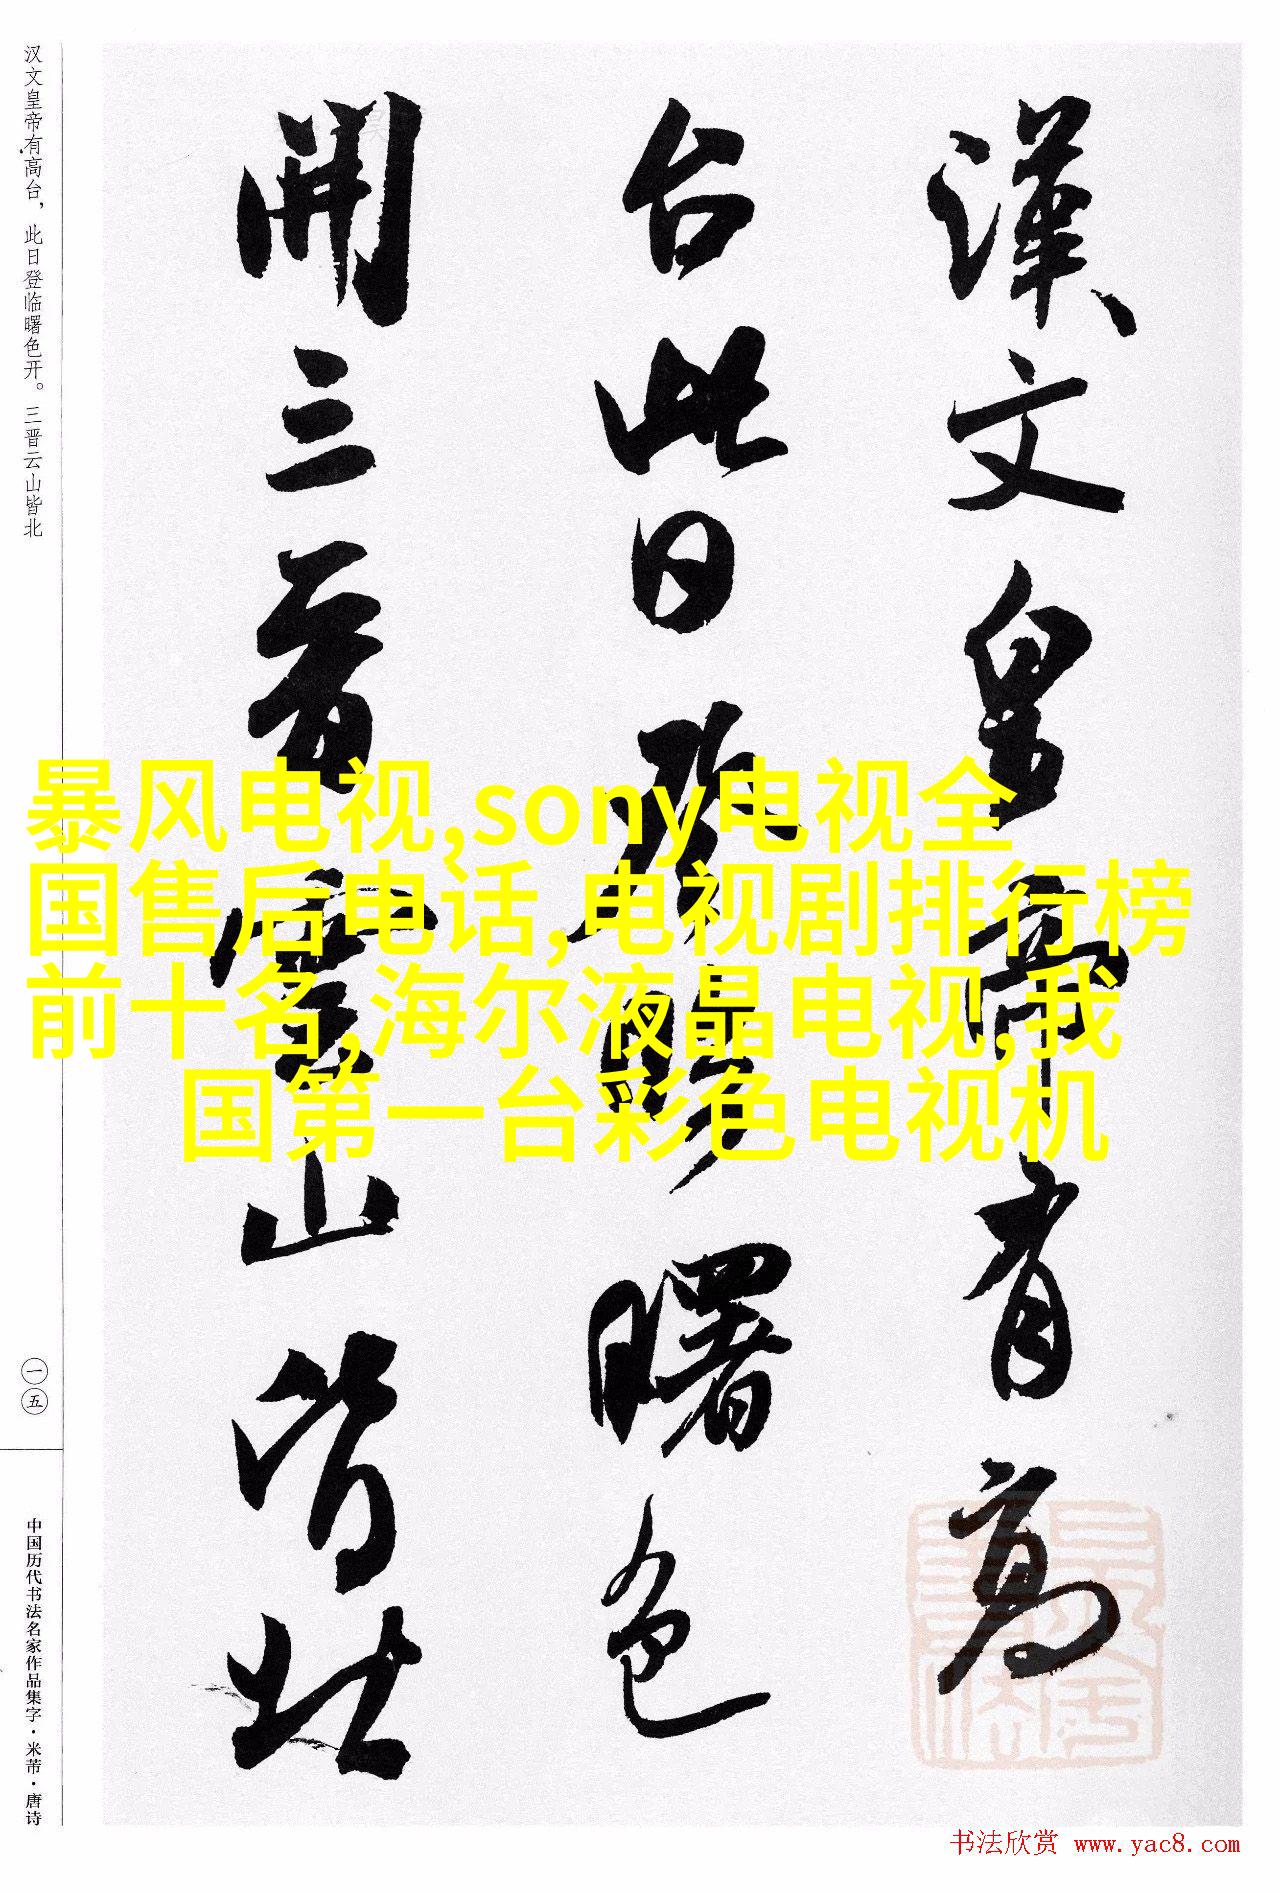 漢文皇帝有高
台此日登臨曙色
開三晉雲山皆北
汉文皇帝有高台，此日登临曙色开。三晋云山皆北
一五
中国历代书法名家作品集字·米芾·唐诗
暴风电视,sony电视全
国售后电话,电视剧排行榜
前十名,海尔液晶电视,我
国第一台彩色电视机
书法欣赏 www.yac8.com